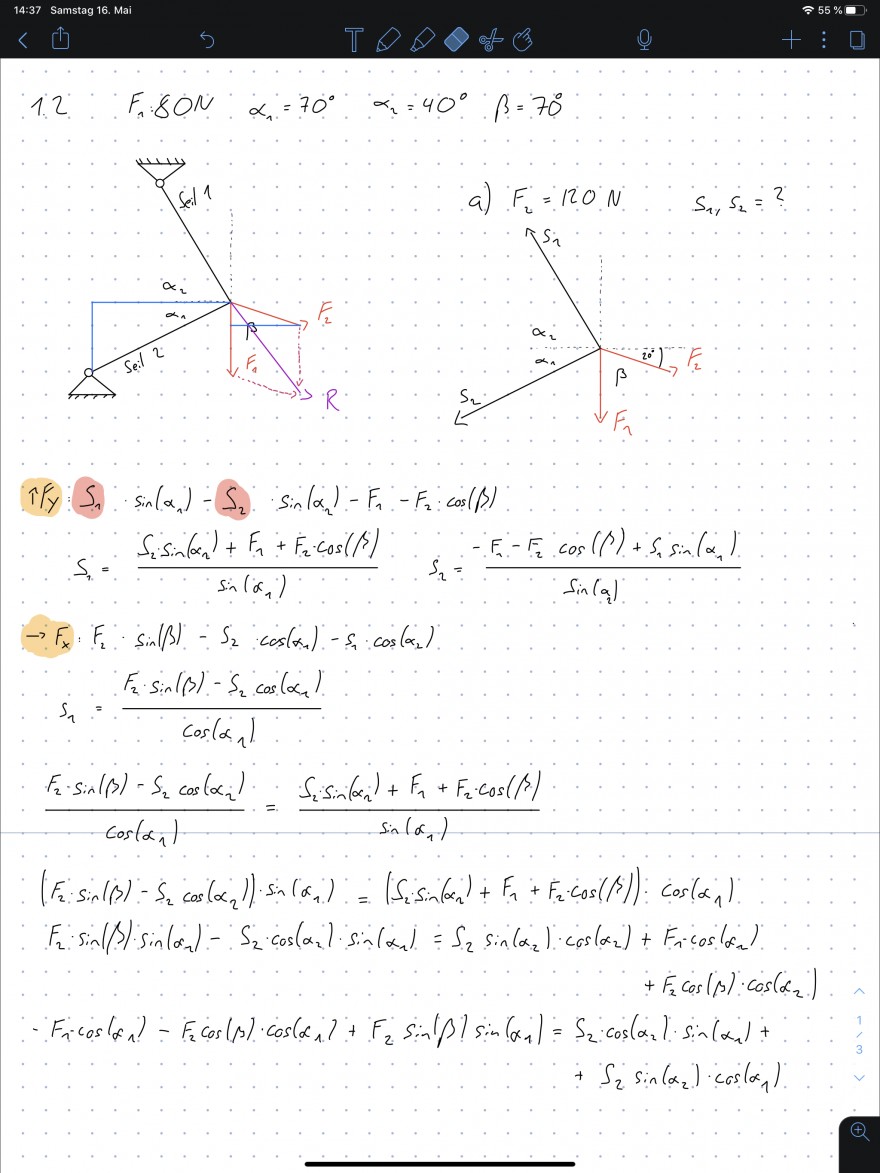 14:37 Samstag 16. Mai 55 %
T
1.2 F₁:80N α₁ = 70° α₂ = 40° β = 70°
Seil 1
a) F₂ = 120 N S₁, S₂ = ?
S₁
α₂
α₁
F₂
β
Seil 2
F₁
R
α₂
α₁
20°
F₂
β
S₂
F₁
↑Fy: S₁ · sin(α₁) − S₂ · sin(α₂) − F₁ − F₂ · cos(β)
S₁ = (S₂·sin(α₂) + F₁ + F₂·cos(β)) / sin(α₁) S₂ = (−F₁ − F₂ cos(β) + S₁ sin(α₁)) / sin(α₂)
→ Fx: F₂ · sin(β) − S₂ · cos(α₁) − S₁ · cos(α₂)
S₁ = (F₂ · sin(β) − S₂ cos(α₂)) / cos(α₁)
(F₂ · sin(β) − S₂ cos(α₂)) / cos(α₁) = (S₂·sin(α₂) + F₁ + F₂·cos(β)) / sin(α₁)
(F₂ · sin(β) − S₂ cos(α₂)) · sin(α₁) = (S₂·sin(α₂) + F₁ + F₂·cos(β)) · cos(α₁)
F₂ · sin(β) · sin(α₁) − S₂ · cos(α₂) · sin(α₁) = S₂ sin(α₂) · cos(α₂) + F₁·cos(α₂)
+ F₂ cos(β) · cos(α₂)
− F₁·cos(α₁) − F₂ cos(β) · cos(α₁) + F₂ sin(β) sin(α₁) = S₂·cos(α₂) · sin(α₁) +
+ S₂ sin(α₂) · cos(α₁)
1
/
3